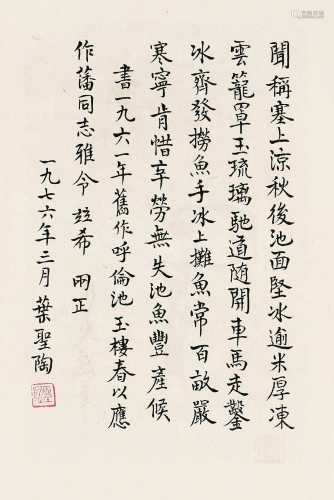 聞稱塞上涼秋後池面堅冰逾米厚凍
雲籠罩玉琉璃馳道隨開車馬走鑿
冰齊發撈魚手冰上攤魚常百畝嚴
寒寧肯惜辛勞無失池魚豐產候
書一九六一年舊作呼倫池玉樓春以應
作藩同志雅令玆希 兩正
一九七六年三月 葉聖陶